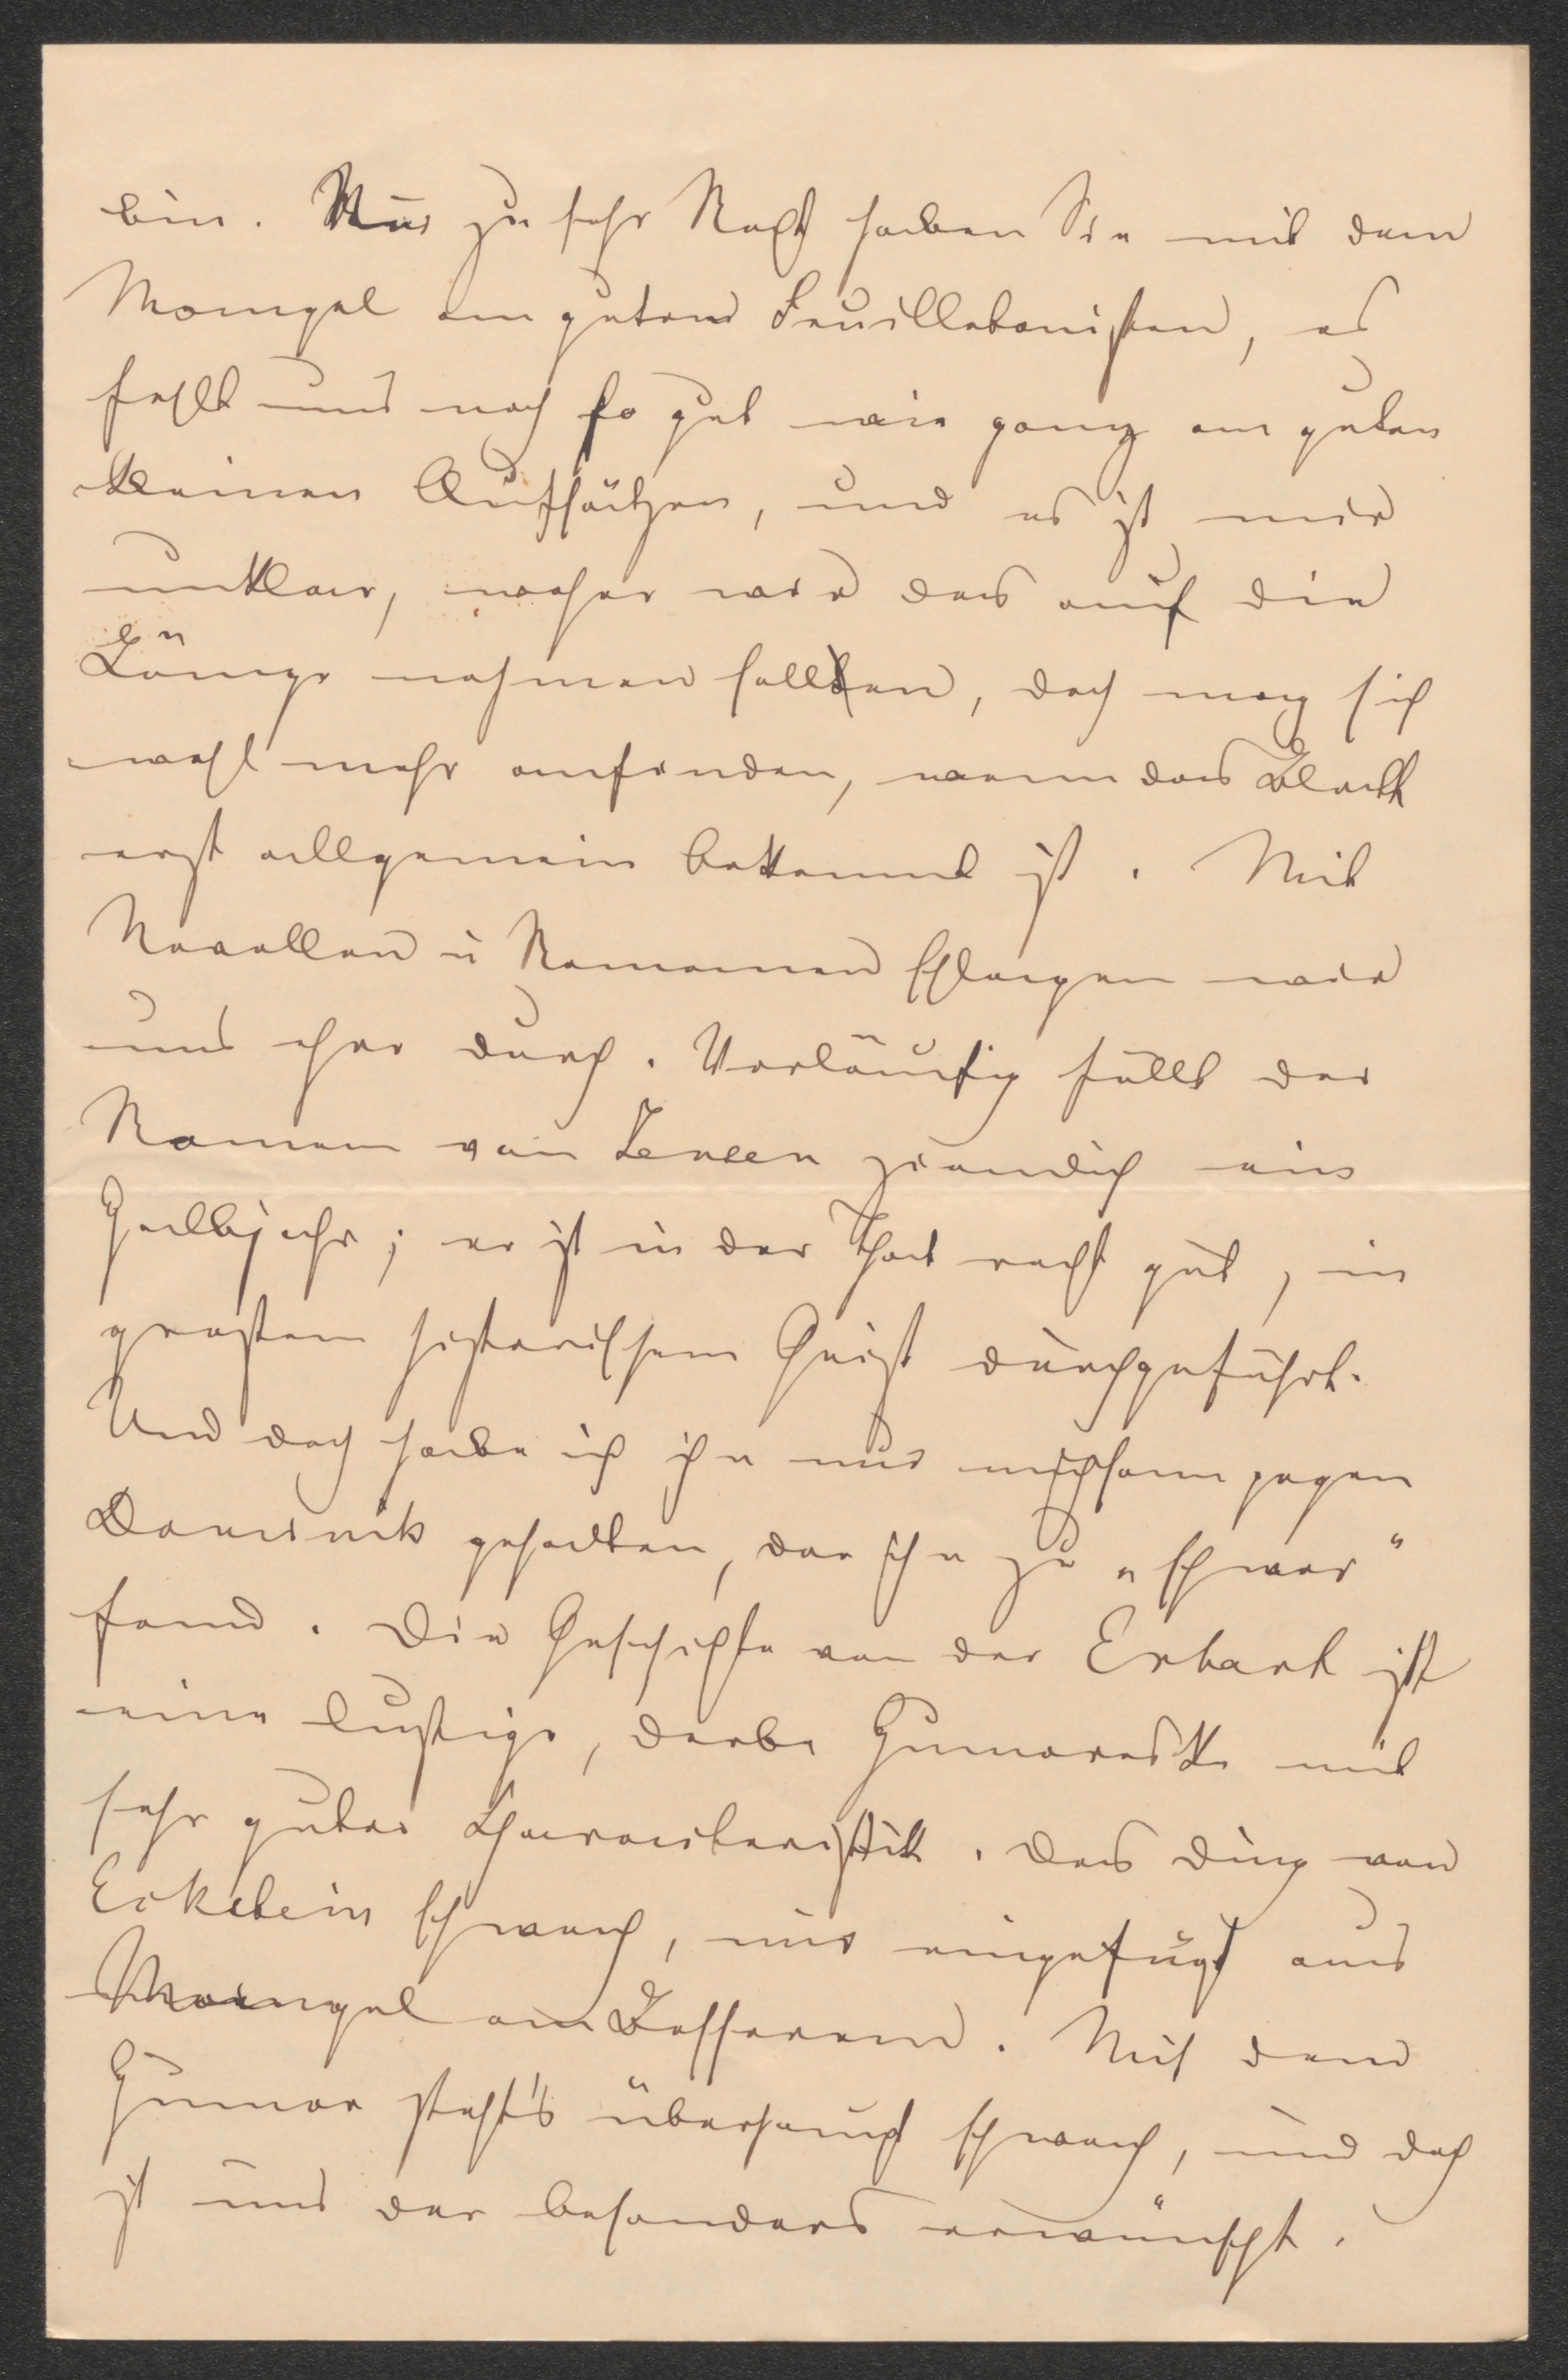 bin. Nur zu sehr Recht haben Sie mit dem
Mangel an guten Feuilletonisten, es
fehlt uns noch so gut wie ganz an guten
kleinen Aufsätzen, und es ist mir
unklar, woher wir das auf die
Länge nehmen sollen, doch mag sich
wohl mehr anfinden, wenn das Blatt
erst allgemein bekannt ist. Mit
Novellen u Romanen schlagen wir
uns eher durch. Vorläufig füllt der
Roman von Jensen ziemlich ein
Halbjahr; er ist in der That recht gut, in
großem historischem Geist durchgeführt.
Und doch habe ich ihn nur mühsam gegen
Dominik gehalten, der ihn zu „schwer“
fand. Die Geschichte von der Erhart ist
eine lustige, derbe Humoreske mit
sehr guter Charakteristik. Das Ding von
Eckstein schwach, nur eingefügt aus
Mangel an Besserem. Mit dem
Humor steht's überhaupt schwach, und doch
ist uns der besonders erwünscht.